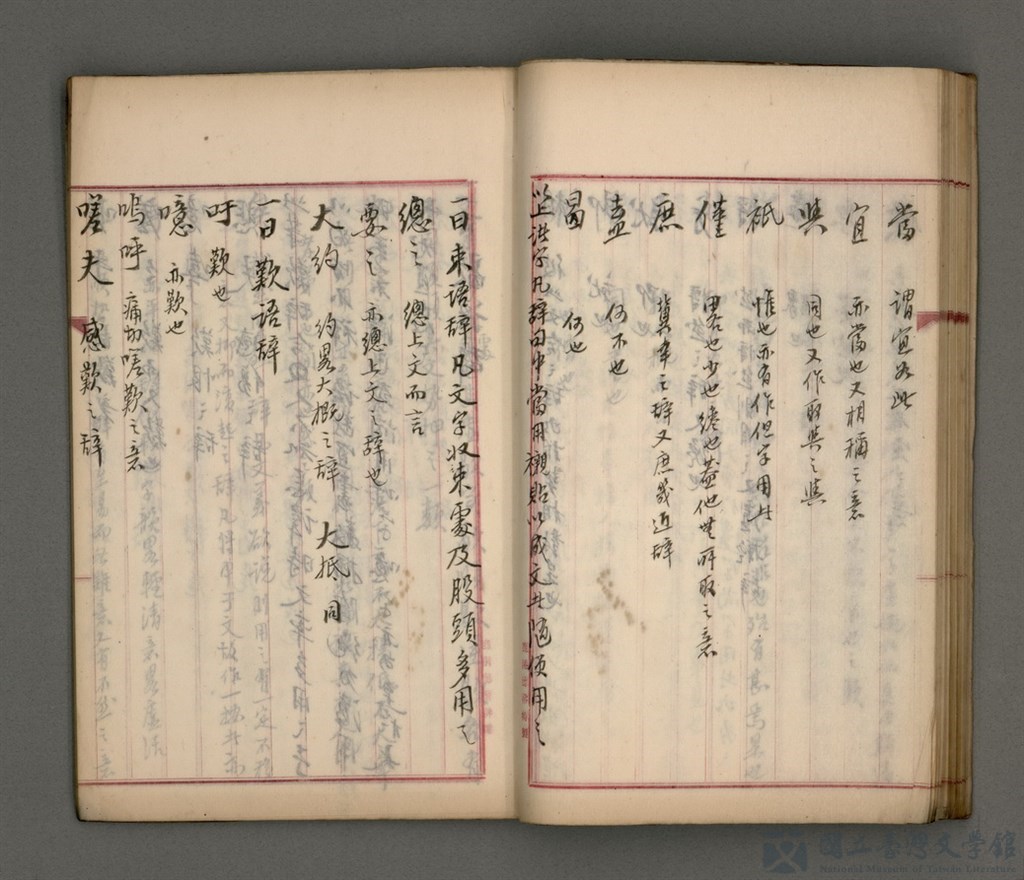 當 謂宜如此
宜 亦當也又相稱之意
與 同也又作取與之與
祇 惟也亦有作但字用者
僅 略也少也纔也蓋他無所取之意
庶 冀幸之辞又庶幾近辞
盍 何不也
曷 何也
以上諸字凡辞句中當用襯貼以成文者随便用之
一曰束语辞凡文字收束處及股頭多用之
總之 總上文而言
要之 亦總上文之辞也
大約 約畧大概之辞 大抵同
一曰歎语辞
吁 歎也
噫 亦歎也
嗚呼 痛切嗟歎之意
嗟夫 感歎之辞
國立臺灣文學館
National Museum of Taiwan Literature